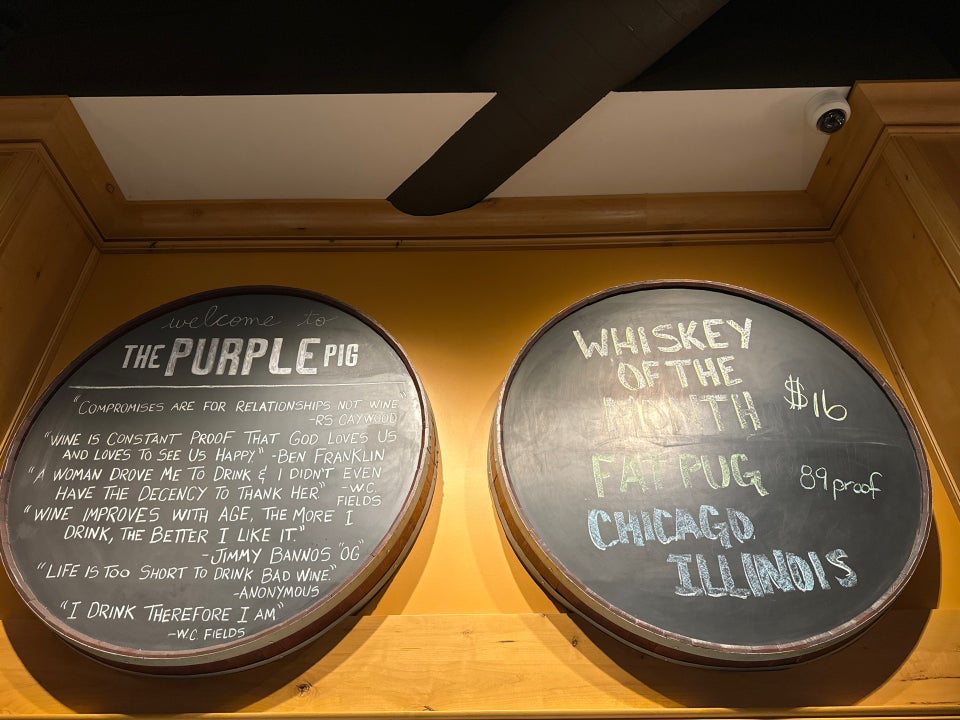 welcome to
THE PURPLE PIG
"COMPROMISES ARE FOR RELATIONSHIPS NOT WINE"
-RS CAYWOOD
"WINE IS CONSTANT PROOF THAT GOD LOVES US
AND LOVES TO SEE US HAPPY" -BEN FRANKLIN
"A WOMAN DROVE ME TO DRINK & I DIDN'T EVEN
HAVE THE DECENCY TO THANK HER" -W.C.
FIELDS
"WINE IMPROVES WITH AGE, THE MORE I
DRINK, THE BETTER I LIKE IT."
-JIMMY BANNOS "OG"
"LIFE IS TOO SHORT TO DRINK BAD WINE."
-ANONYMOUS
"I DRINK THEREFORE I AM"
-W.C. FIELDS
WHISKEY
OF THE
MONTH $16
FAT PUG 89 proof
CHICAGO
ILLINOIS